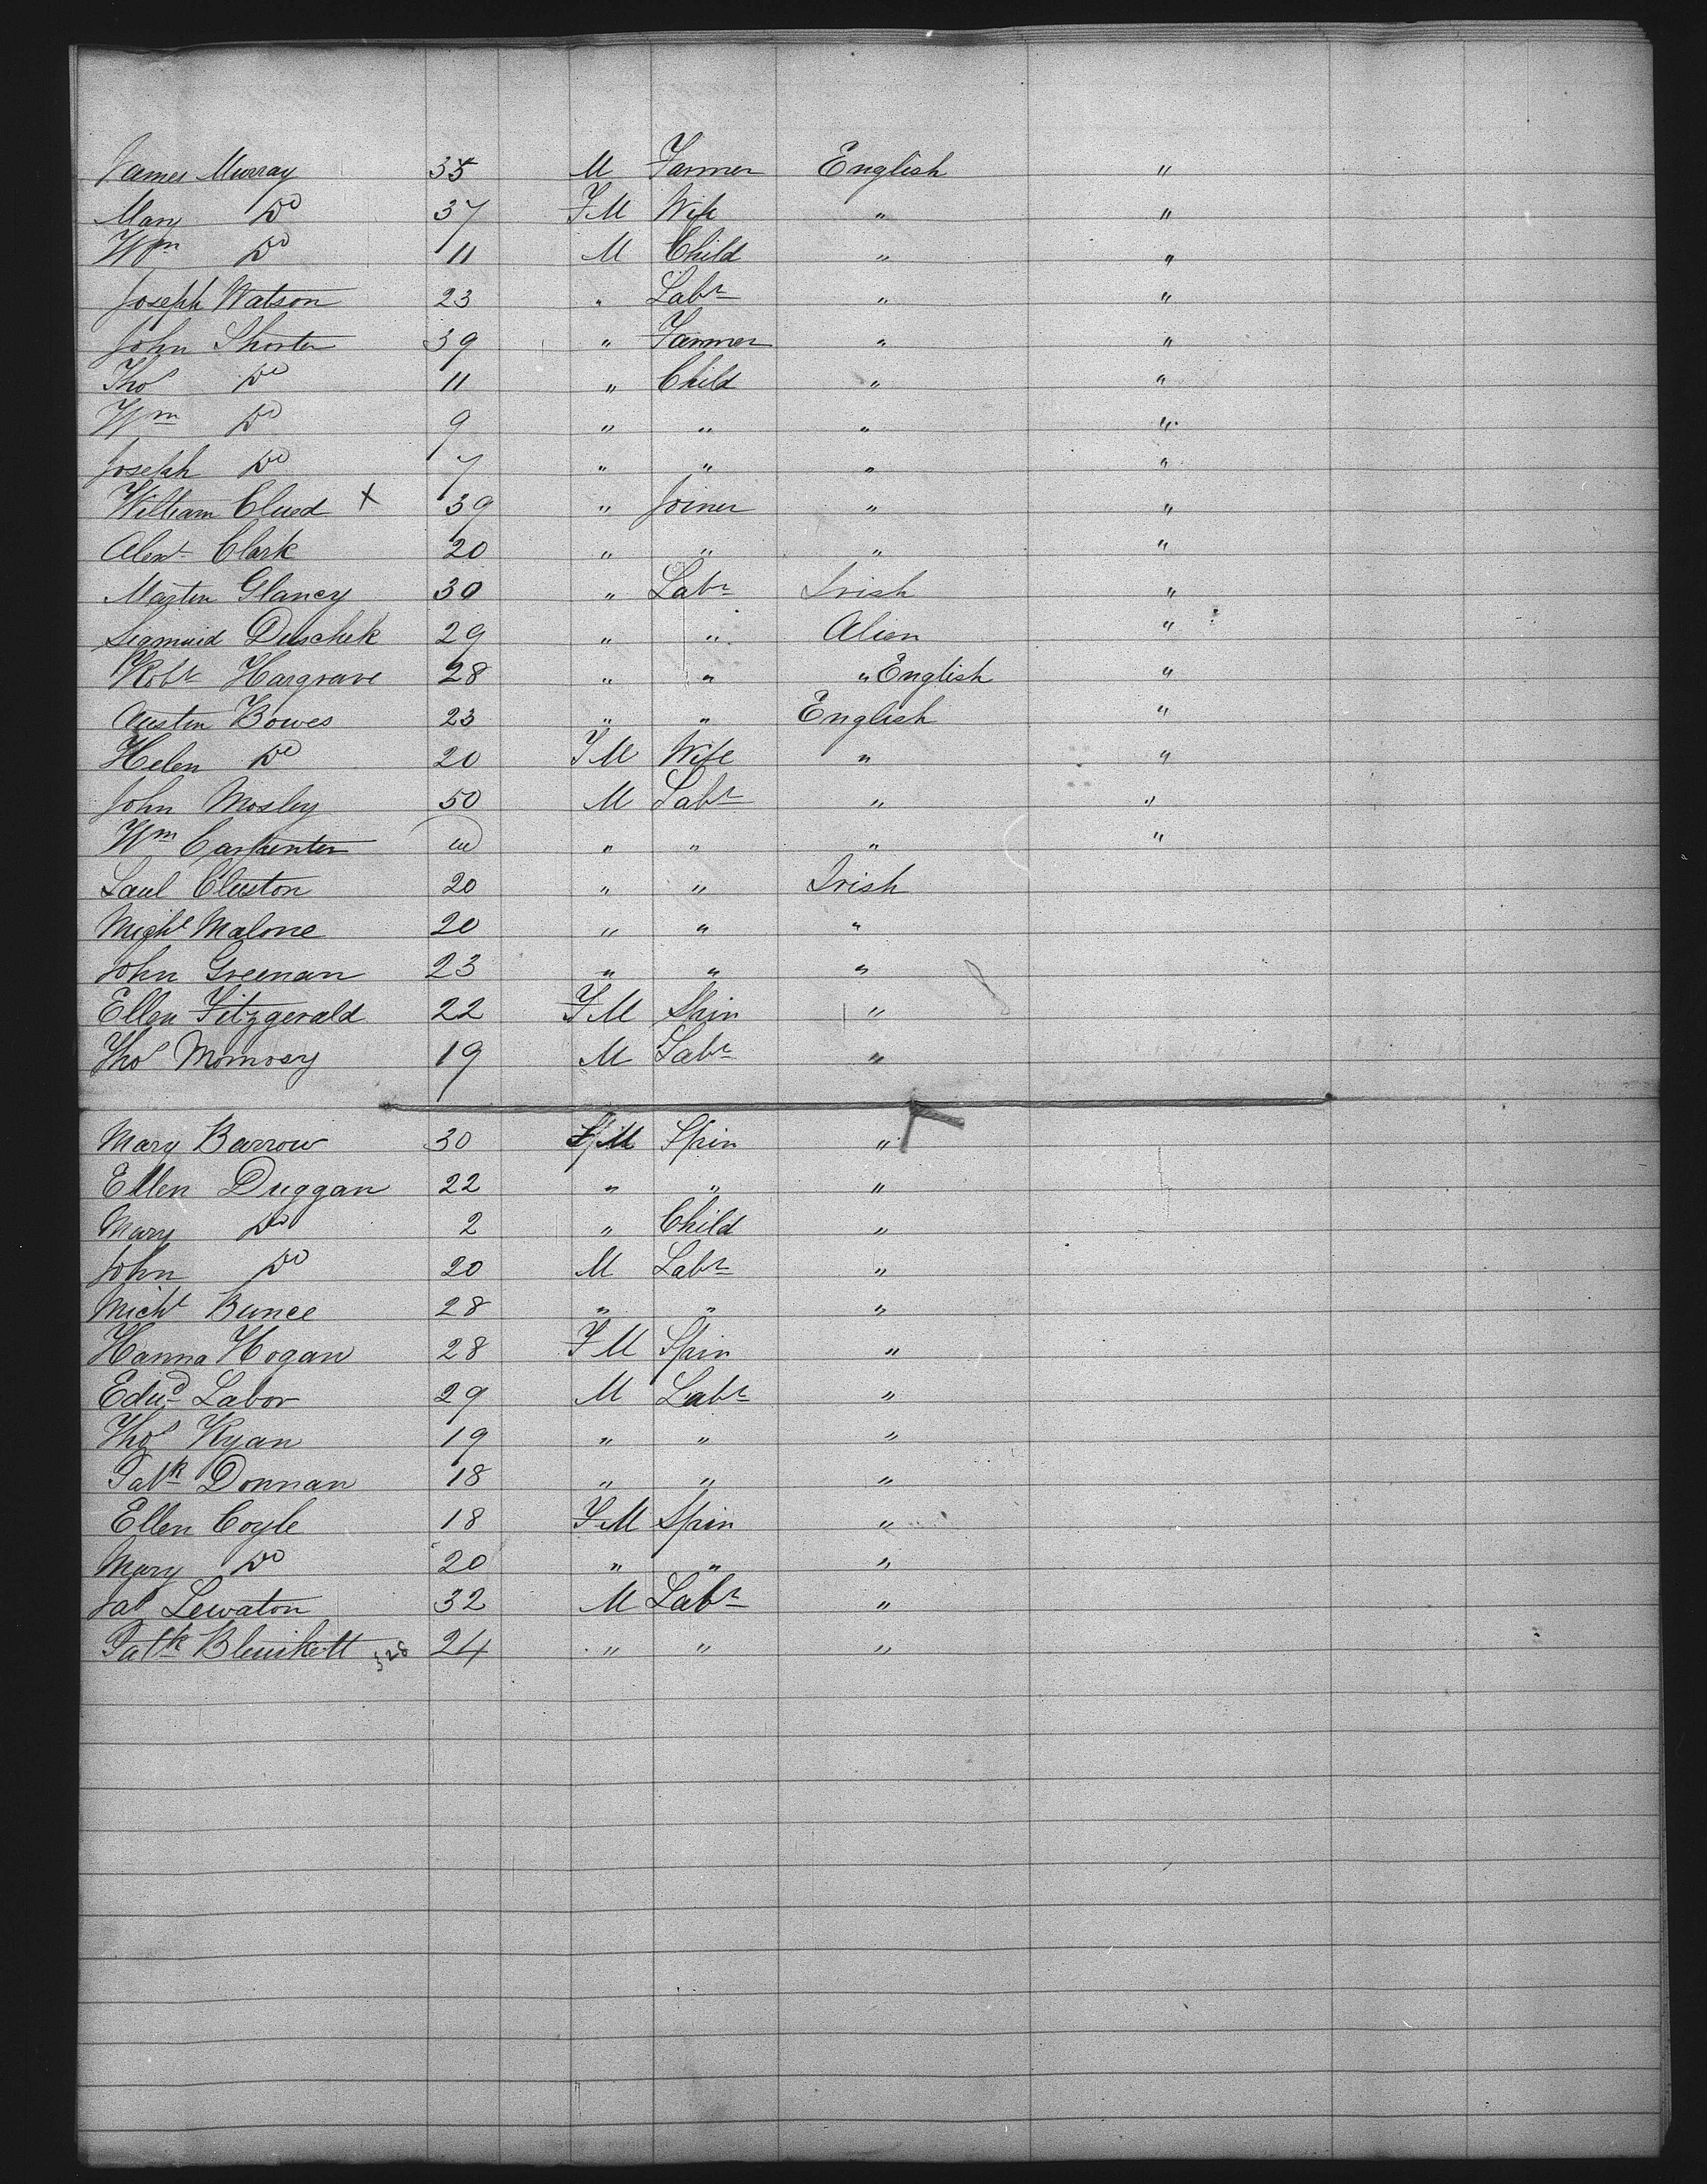 James Murray 35 M Farmer English "
Mary Do 37 FM Wife " "
Wm Do 11 M Child " "
Joseph Watson 23 " Labr " "
John Shorter 39 " Farmer " "
Thos Do 11 " Child " "
Wm Do 9 " " " "
Joseph Do 7 " " " "
William Clued X 39 " Joiner " "
Alexr Clark 20 " " " "
Martin Glancy 30 " Labr Irish "
Sigmuid Duschek 29 " " Alien "
Robt Hargrave 28 " " " English "
Austin Bowes 23 " " English "
Helen Do 20 FM Wife " "
John Mosley 50 M Labr " "
Wm Carpenter " " " "
Saul Cluston 20 " " Irish
Michl Malone 20 " " "
John Greenan 23 " " "
Ellen Fitzgerald 22 FM Spin "
Thos 19 M Labr "
Mary Barrow 30 FM Spin "
Ellen Duggan 22 " " "
Mary Do 2 " Child "
John Do 20 M Labr "
Michl Bunce 28 " " "
Hanna Hogan 28 FM Spin "
Edwd Labor 29 M Labr "
Thos Ryan 19 " " "
Patk Donnan 18 " " "
Ellen Coyle 18 FM Spin "
Mary Do 20 " " "
Jas Lewaton 32 M Labr "
Patk 328 24 " " "